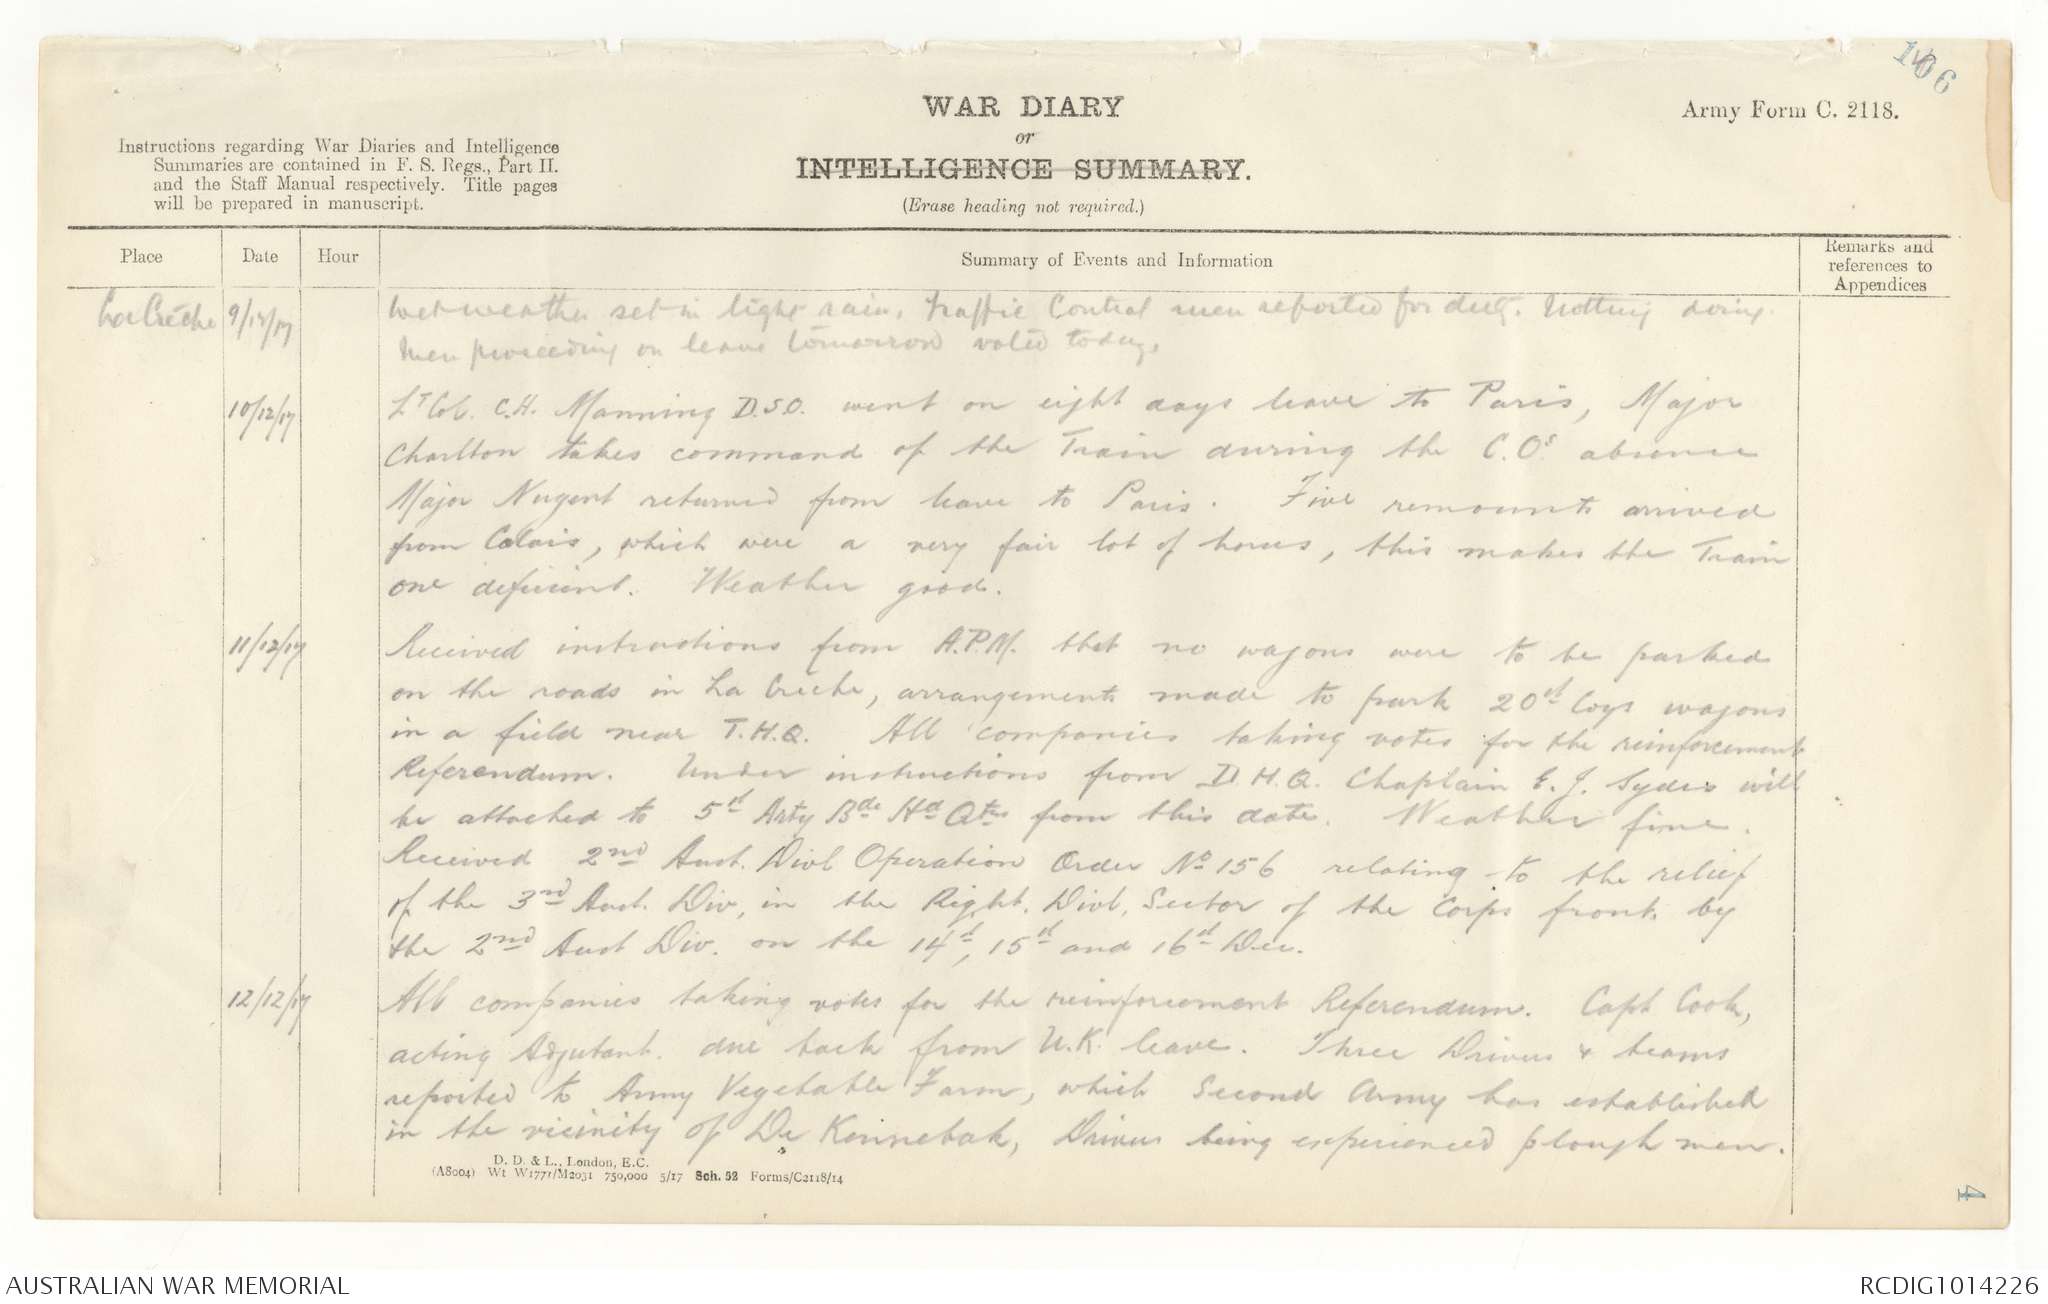 106
WAR DIARY
or
INTELLIGENCE SUMMARY.
(Erase heading not required.)
Army Form C. 2118.
Instructions regarding War Diaries and Intelligence
Summaries are contained in F. S. Regs., Part II.
and the Staff Manual respectively. Title pages
will be prepared in manuscript.
Place
Date
Hour
Summary of Events and Information
Remarks and
references to
Appendices
La Crèche 9/12/17 Wet weather set in light rain. Traffic Control men reported for duty. Nothing doing.
Men proceeding on leave tomorrow voted today.
10/12/17 Lt Col. C.H. Manning D.S.O. went on eight days leave to Paris, Major
Charlton takes command of the Train during the C.O's absence
Major Nugent returned from leave to Paris. Five remounts arrived
from Calais, which were a very fair lot of horses, this makes the Train
one deficient. Weather good.
11/12/17 Received instructions from A.P.M. that no wagons were to be parked
on the roads in La Creche, arrangements made to park 20th Coys wagons
in a field near T.H.Q. All companies taking votes for the reinforcement
Referendum. Under instructions from D.H.Q. Chaplain E.J. Sydes will
be attached to 5th Arty Bde Hd Qtrs from this date. Weather fine.
Received 2nd Aust. Divl Operation Order No 156 relating to the relief
of the 3rd Aust. Div, in the Right. Divl. Sector of the Corps front, by
the 2nd Aust Div. on the 14th, 15th and 16th Dec.
12/12/17 All companies taking votes for the reinforcement Referendum. Capt Cook,
acting Adjutant. due back from U.K. leave. Three Drivers & teams
reported to Army Vegetable Farm, which Second Army has established
in the vicinity of De Kennebak, Drivers being experienced plough men.
D. D. & L., London, E.C.
(A8004) Wt W1771/M2031 750,000 5/17 Sch. 52 Forms/C2118/14
4
AUSTRALIAN WAR MEMORIAL
RCDIG1014226